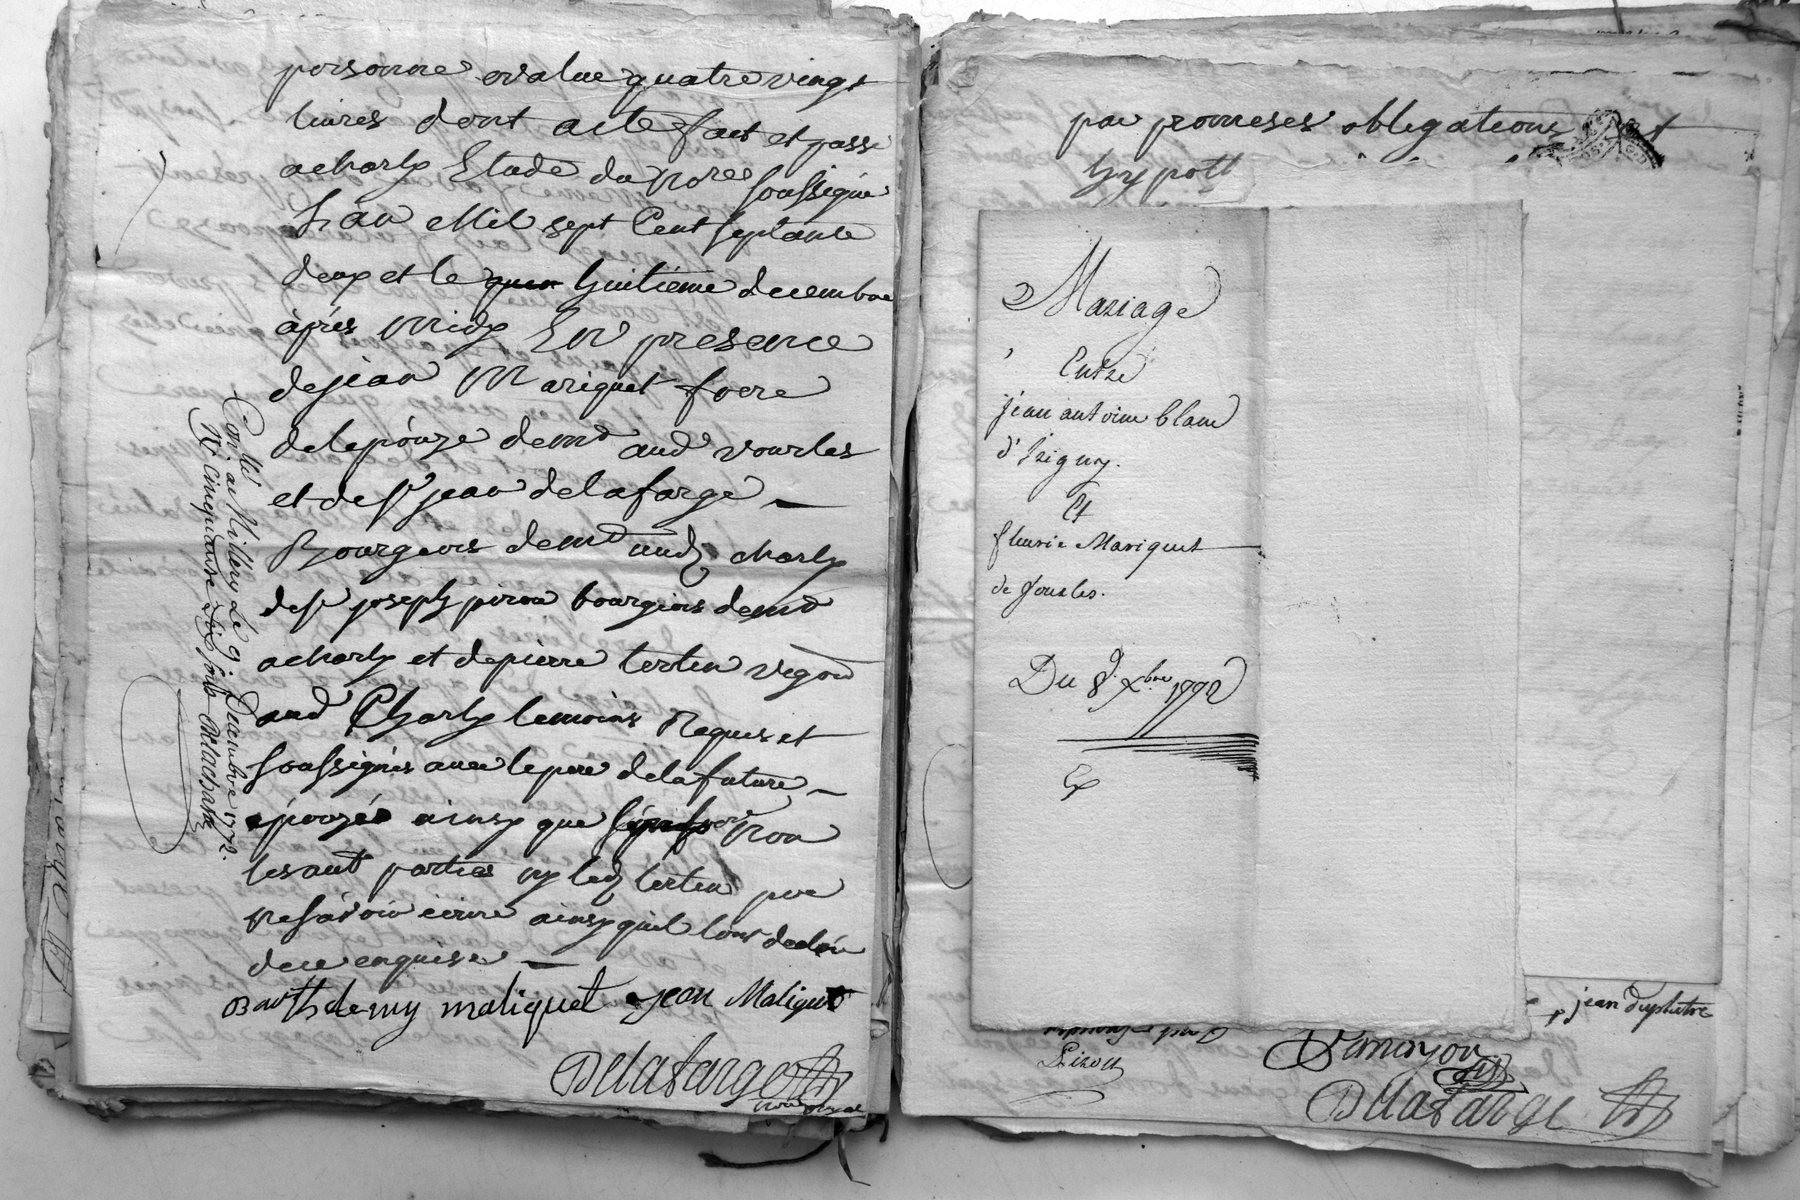 personne evalue quatre vingt
livres dont acte fait et passe
a charly Etude du nore soussigne
L'an Mil sept Cent septante
deux et le huitieme decembre
après midy En presence
de jean Mariquet frere
de lepouze dem^t aud vourles
et de s^r jean delafarge
Bourgeois dem^t aud charly
de s^r joseph piron bourgeois dem^t
a charly et de pierre terten vigon
aud Charly temoins Requis et
soussignés avec le pere de la future
épouzée ainsy que non
les aut parties ny led terten pour
ne savoir écrire ainsy quil lont declaré
de ce enquis
Barthelemy mariquet jean Mariquet
Delafarge
Con^lé a Millery Le 9 Decembre 1772.
R^t cinquante Six sols Delachar
par promeses obligations
hypott
Mariage
Entre
jean antoine blanc
d'Irigny.
Et
fleurie Mariquet
de Vourles.
Du 8.^e X^bre 1772
Ex
jean duplatre
Piron
Delafarge